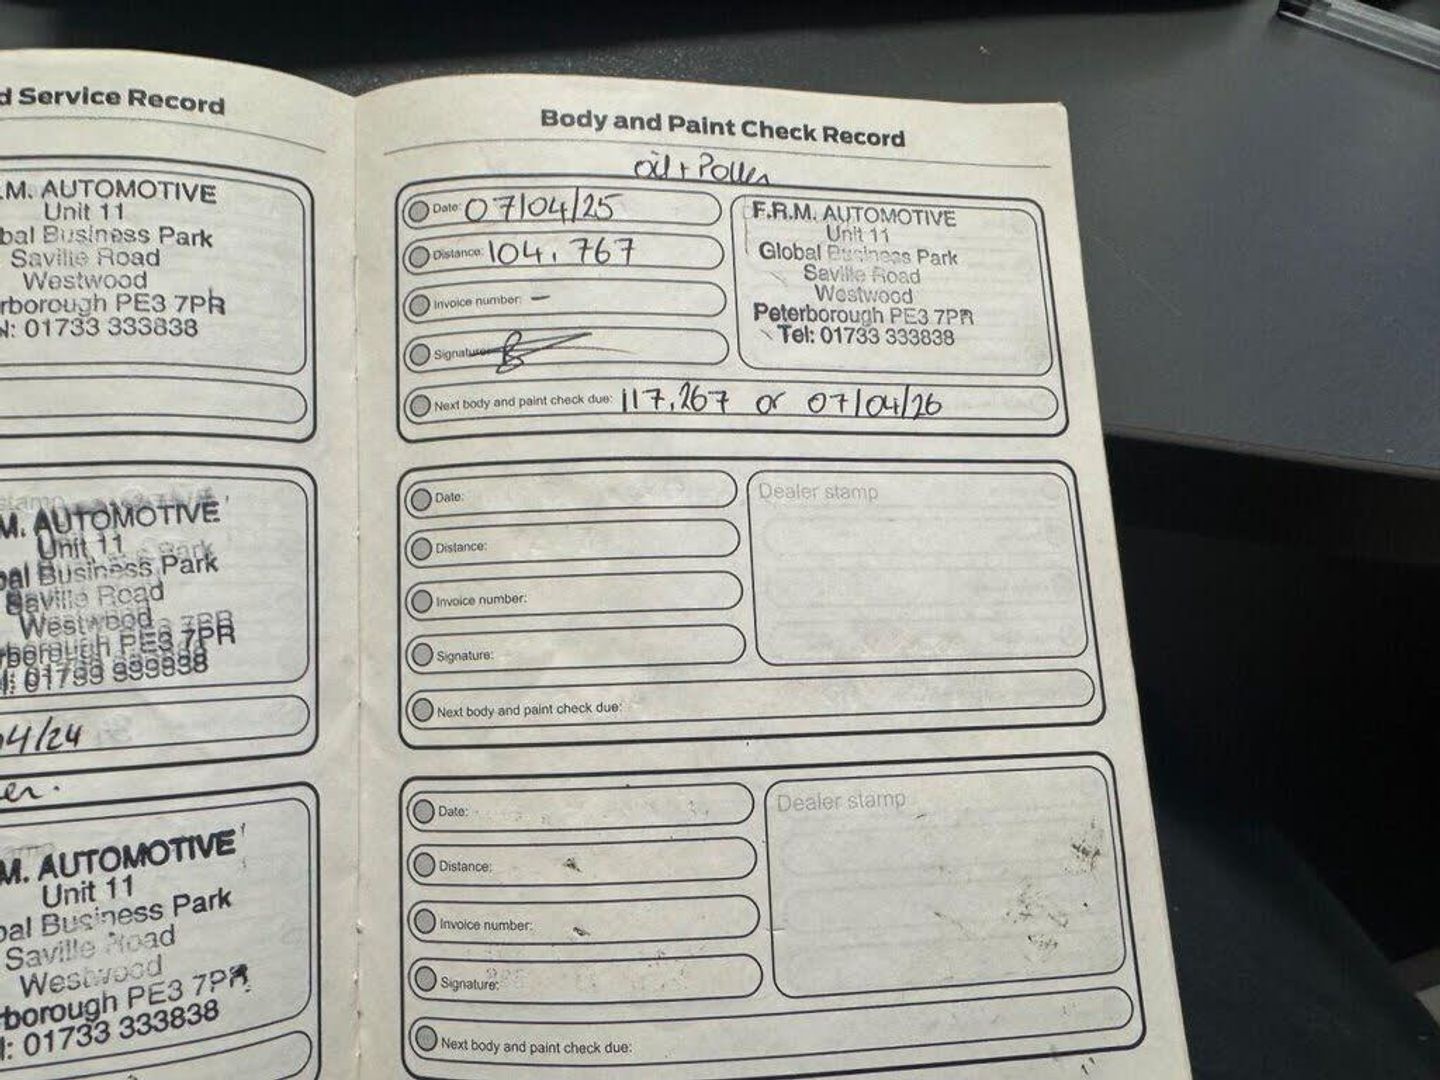 d Service Record
.M. AUTOMOTIVE
Unit 11
bal Business Park
Saville Road
Westwood
rborough PE3 7PR
l: 01733 333838
M. AUTOMOTIVE
Unit 11
bal Business Park
Saville Road
Westwood
rborough PE3 7PR
04/24
er.
M. AUTOMOTIVE
Unit 11
bal Business Park
Saville Road
Westwood
rborough PE3 7PR
l: 01733 333838
Body and Paint Check Record
oil + Pollen
Date: 07/04/25
Distance: 104,767
Invoice number: -
Signature:
F.R.M. AUTOMOTIVE
Unit 11
Global Business Park
Saville Road
Westwood
Peterborough PE3 7PR
Tel: 01733 333838
Next body and paint check due: 117,267 or 07/04/26
Date:
Distance:
Invoice number:
Signature:
Dealer stamp
Next body and paint check due:
Date:
Distance:
Invoice number:
Signature:
Dealer stamp
Next body and paint check due:
11